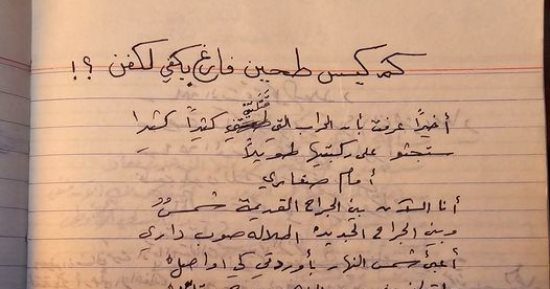 كم كيس طحين فارغ يكفي لكفن ؟!
أخيراً عرفت بأن الحرب التي قتلتني كثيراً كثيرا
ستجثو على ركبتيها طويلاً
أمام صغاري
أنا السكن بين الجراح القديمة شمس
وبين الجراح الجديده الهلاله صوب داري
أعبئ شمس النهار بأوردتي كي اواصل